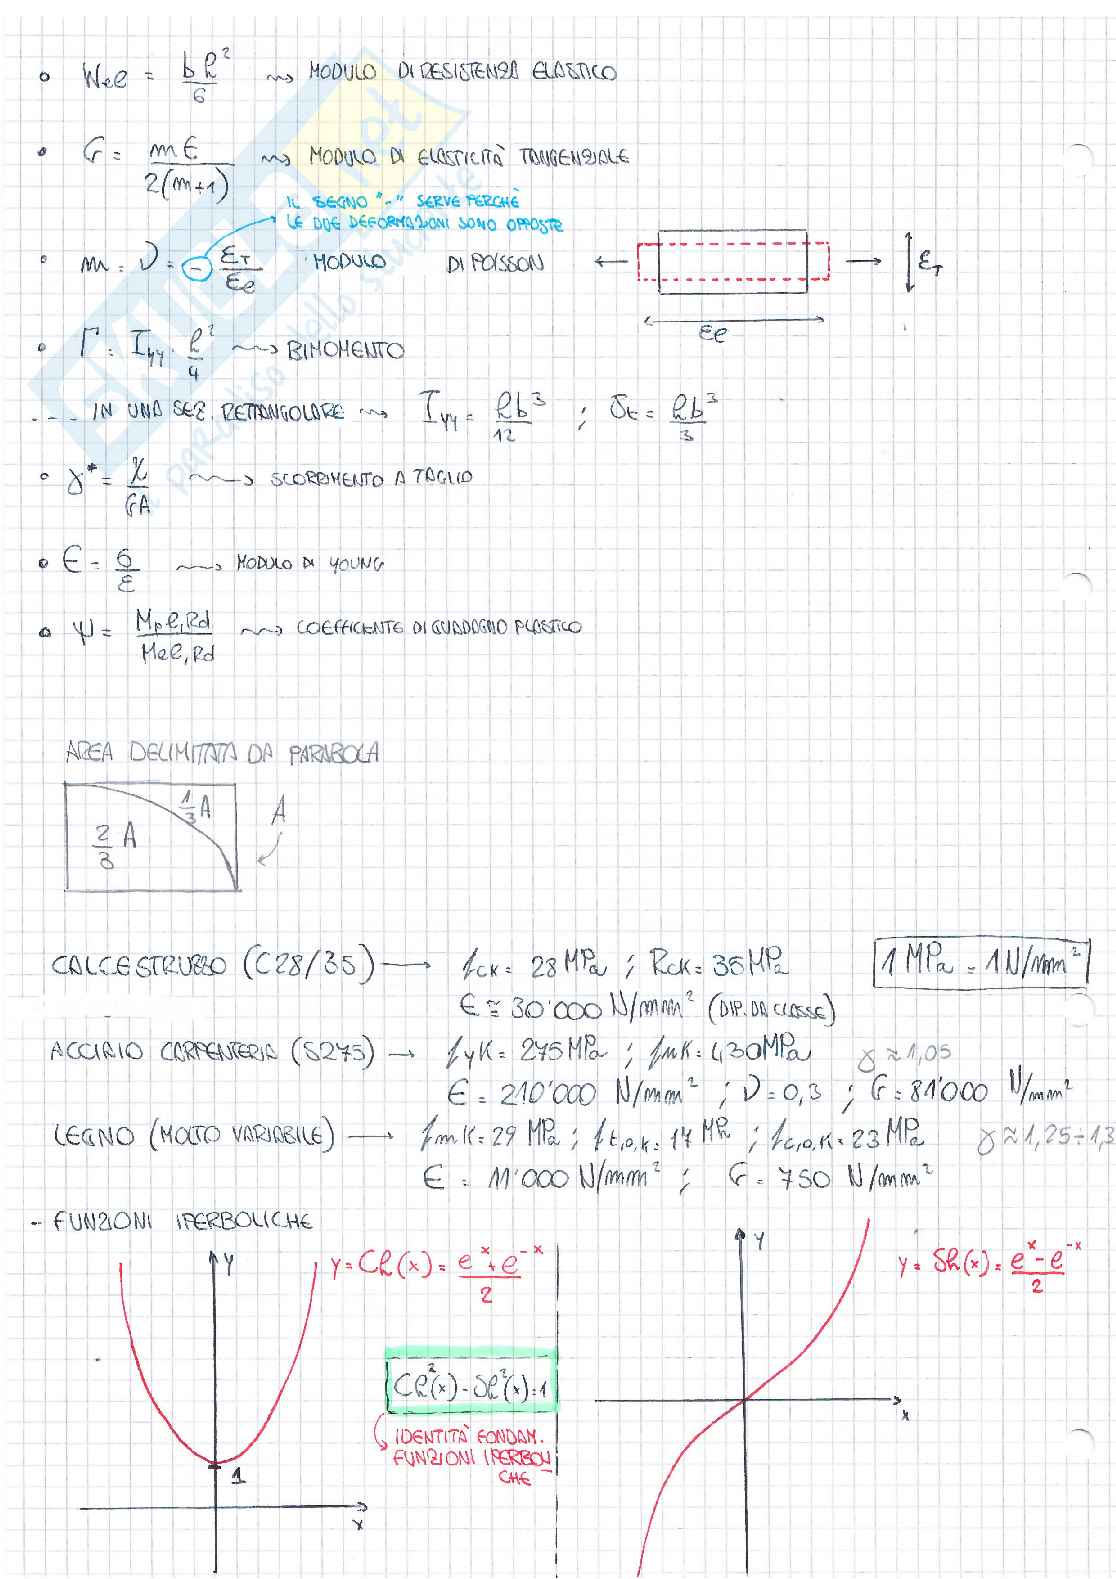 • Wel = bh²/6 ⇝ MODULO DI RESISTENZA ELASTICO
• G = mE/2(m+1) ⇝ MODULO DI ELASTICITÀ TANGENZIALE
IL SEGNO "-" SERVE PERCHÈ
LE DUE DEFORMAZIONI SONO OPPOSTE
• m = ν = - εT/εl MODULO DI POISSON
εT
εl
• Γ = Iyy · h²/4 ⇝ BIMOMENTO
---- IN UNA SEZ. RETTANGOLARE ⇝ Iyy = hb³/12 ; Jt = hb³/3
• γ* = χ/GA ⇝ SCORRIMENTO A TAGLIO
• E = σ/ε ⇝ MODULO DI YOUNG
• ψ = Mpl,Rd/Mel,Rd ⇝ COEFFICIENTE DI GUADAGNO PLASTICO
AREA DELIMITATA DA PARABOLA
1/3 A
A
2/3 A
CALCESTRUZZO (C28/35) → fck = 28 MPa ; Rck = 35 MPa
1 MPa = 1 N/mm²
E ≅ 30'000 N/mm² (DIP. DA CLASSE)
ACCIAIO CARPENTERIA (S275) → fyk = 275 MPa ; fuk = 430 MPa γ ≈ 1,05
E = 210'000 N/mm² ; ν = 0,3 ; G = 81'000 N/mm²
LEGNO (MOLTO VARIABILE) → fmk = 29 MPa ; ft,0,k = 17 MPa ; fc,0,k = 23 MPa γ ≈ 1,25÷1,3
E = 11'000 N/mm² ; G = 750 N/mm²
- FUNZIONI IPERBOLICHE
y
y = Ch(x) = (e^x + e^-x)/2
1
x
Ch²(x) - Sh²(x) = 1
IDENTITÀ FONDAM.
FUNZIONI IPERBOLI
CHE
y
y = Sh(x) = (e^x - e^-x)/2
x